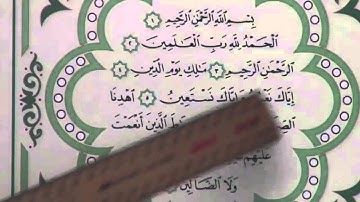 بِسْمِ ٱللَّهِ ٱلرَّحْمَٰنِ ٱلرَّحِيمِ ١
ٱلْحَمْدُ لِلَّهِ رَبِّ ٱلْعَٰلَمِينَ ٢
ٱلرَّحْمَٰنِ ٱلرَّحِيمِ ٣ مَٰلِكِ يَوْمِ ٱلدِّينِ ٤
إِيَّاكَ وَإِيَّاكَ نَسْتَعِينُ ٥ ٱهْدِنَا
ٱلَّذِينَ أَنْعَمْتَ
عَلَيْهِمْ
وَلَا ٱلضَّآلِّينَ